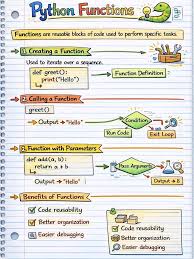 Python Functions
Functions are reusable blocks of code used to perform specific tasks.
1) Creating a Function
Used to iterate over a sequence.
def greet():
print("Hello")
Function Definition
2. Calling a Function
greet()
Output → "Hello"
Condition
Run Code
Exit Loop
3. Function with Parameters
def add(a, b):
return a + b
Pass Arguments
Output → "Hello"
Output → 8
Benefits of Functions
Code reusability
Better organization
Easier debugging
Code reusability
Better organization
Easier debugging